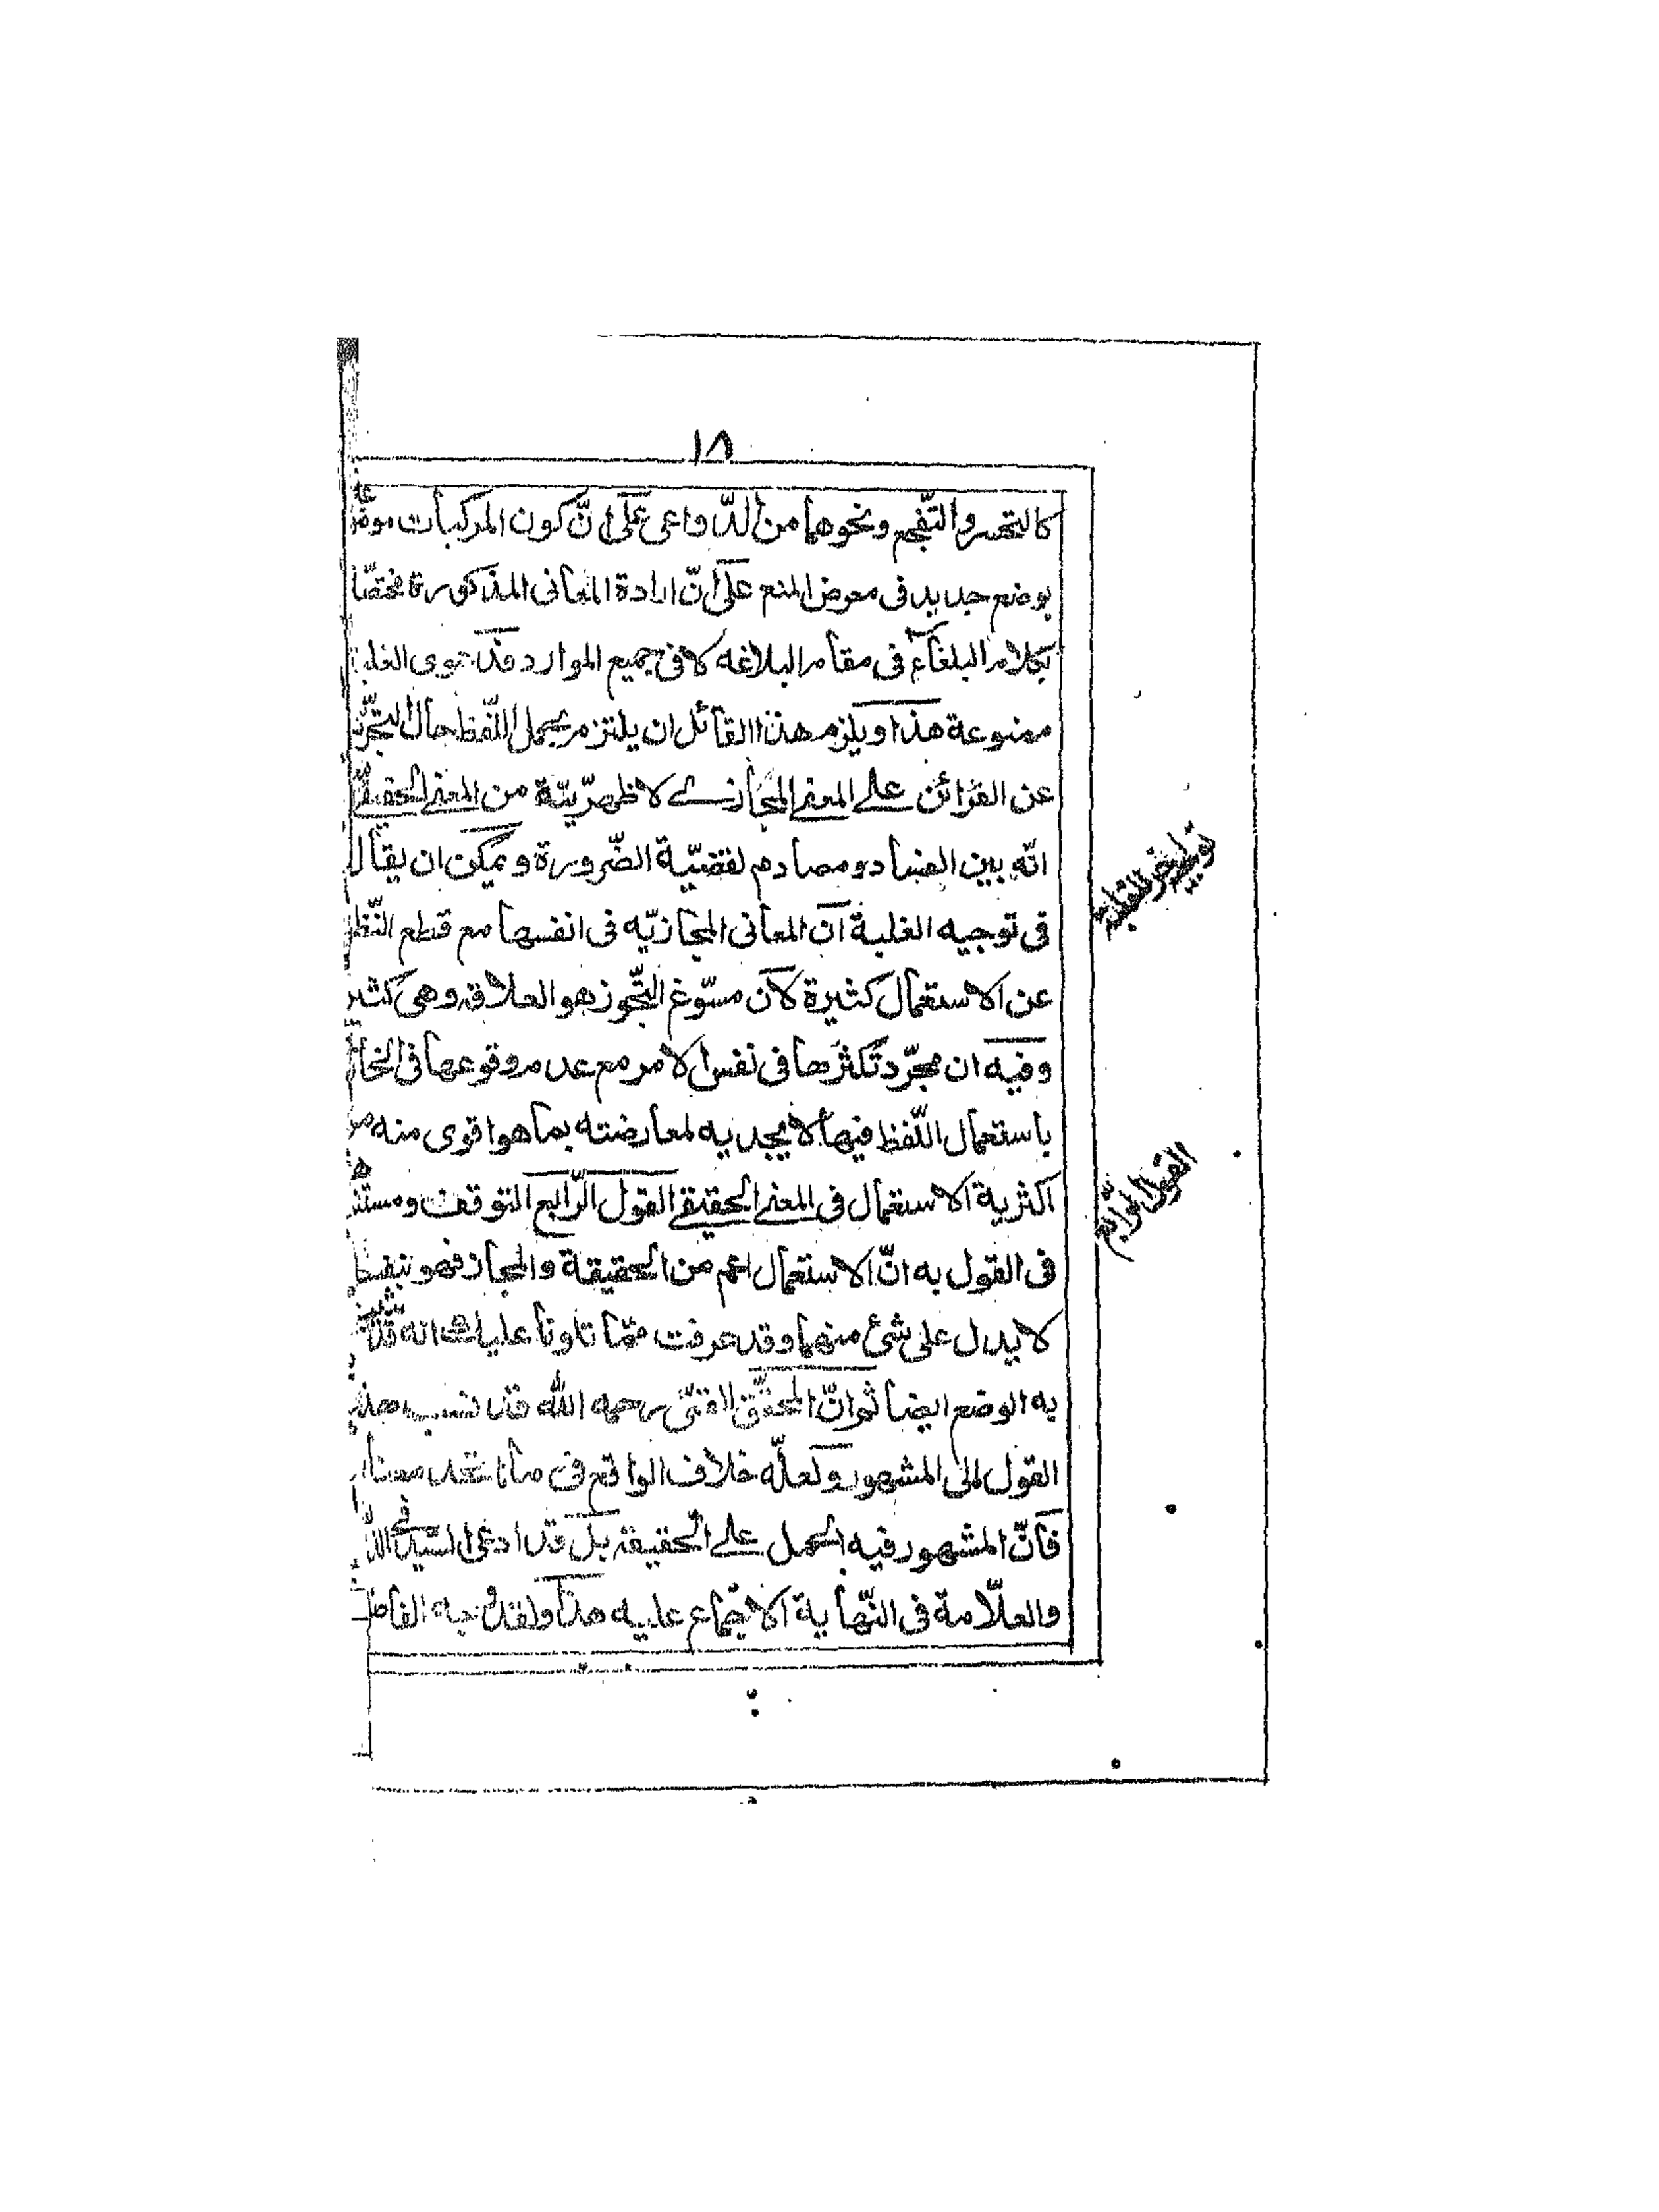 ١٨
كالتحسر والتّفجع ونحوهما من الدّواعى على انّ كون المركبات
بوضع جديد فى معرض المنع على انّ ارادة المعانى المذكورة مختصّة
بكلام البلغاء فى مقام البلاغه لا فى جميع الموارد فدعوى الغلبة
ممنوعة هذا ويلزم هذا القائل ان يلتزم بحمل اللّفظ حال التجرّد
عن القرائن على المعنى المجازى لاظهريّته من المعنى الحقيقى
انّه بين الفساد ومصادم لقضيّة الضّرورة ويمكن ان يقال
فى توجيه الغلبة انّ المعانى المجازيّه فى انفسها مع قطع النّظر
عن الاستعمال كثيرة لانّ مسوّغ التّجوز هو العلاقه وهى كثيرة
وفيه ان مجرّد تكثرها فى نفس الامر مع عدم وقوعها فى الخارج
باستعمال اللّفظ فيها لا يجديه لمعارضته بما هو اقوى منه من
اكثرية الاستعمال فى المعنى الحقيقى القول الرّابع التوقف ومستند
فى القول به انّ الاستعمال اعم من الحقيقة والمجاز فهو بنفسه
لا يدل على شئ منهما وقد عرفت ممّا تلونا عليك انه قد
به الوضع ايضا ثم انّ المحقّق القمّى رحمه الله قد نسب هذا
القول الى المشهور ولعلّه خلاف الواقع فى ما اتحد معناه
فانّ المشهور فيه الحمل على الحقيقة بل قد ادعى السّيد
والعلّامة فى النّهاية الاجماع عليه هذا ولقد وجه الفاضل
توجيه اخر للغلبة
القول الرّابع